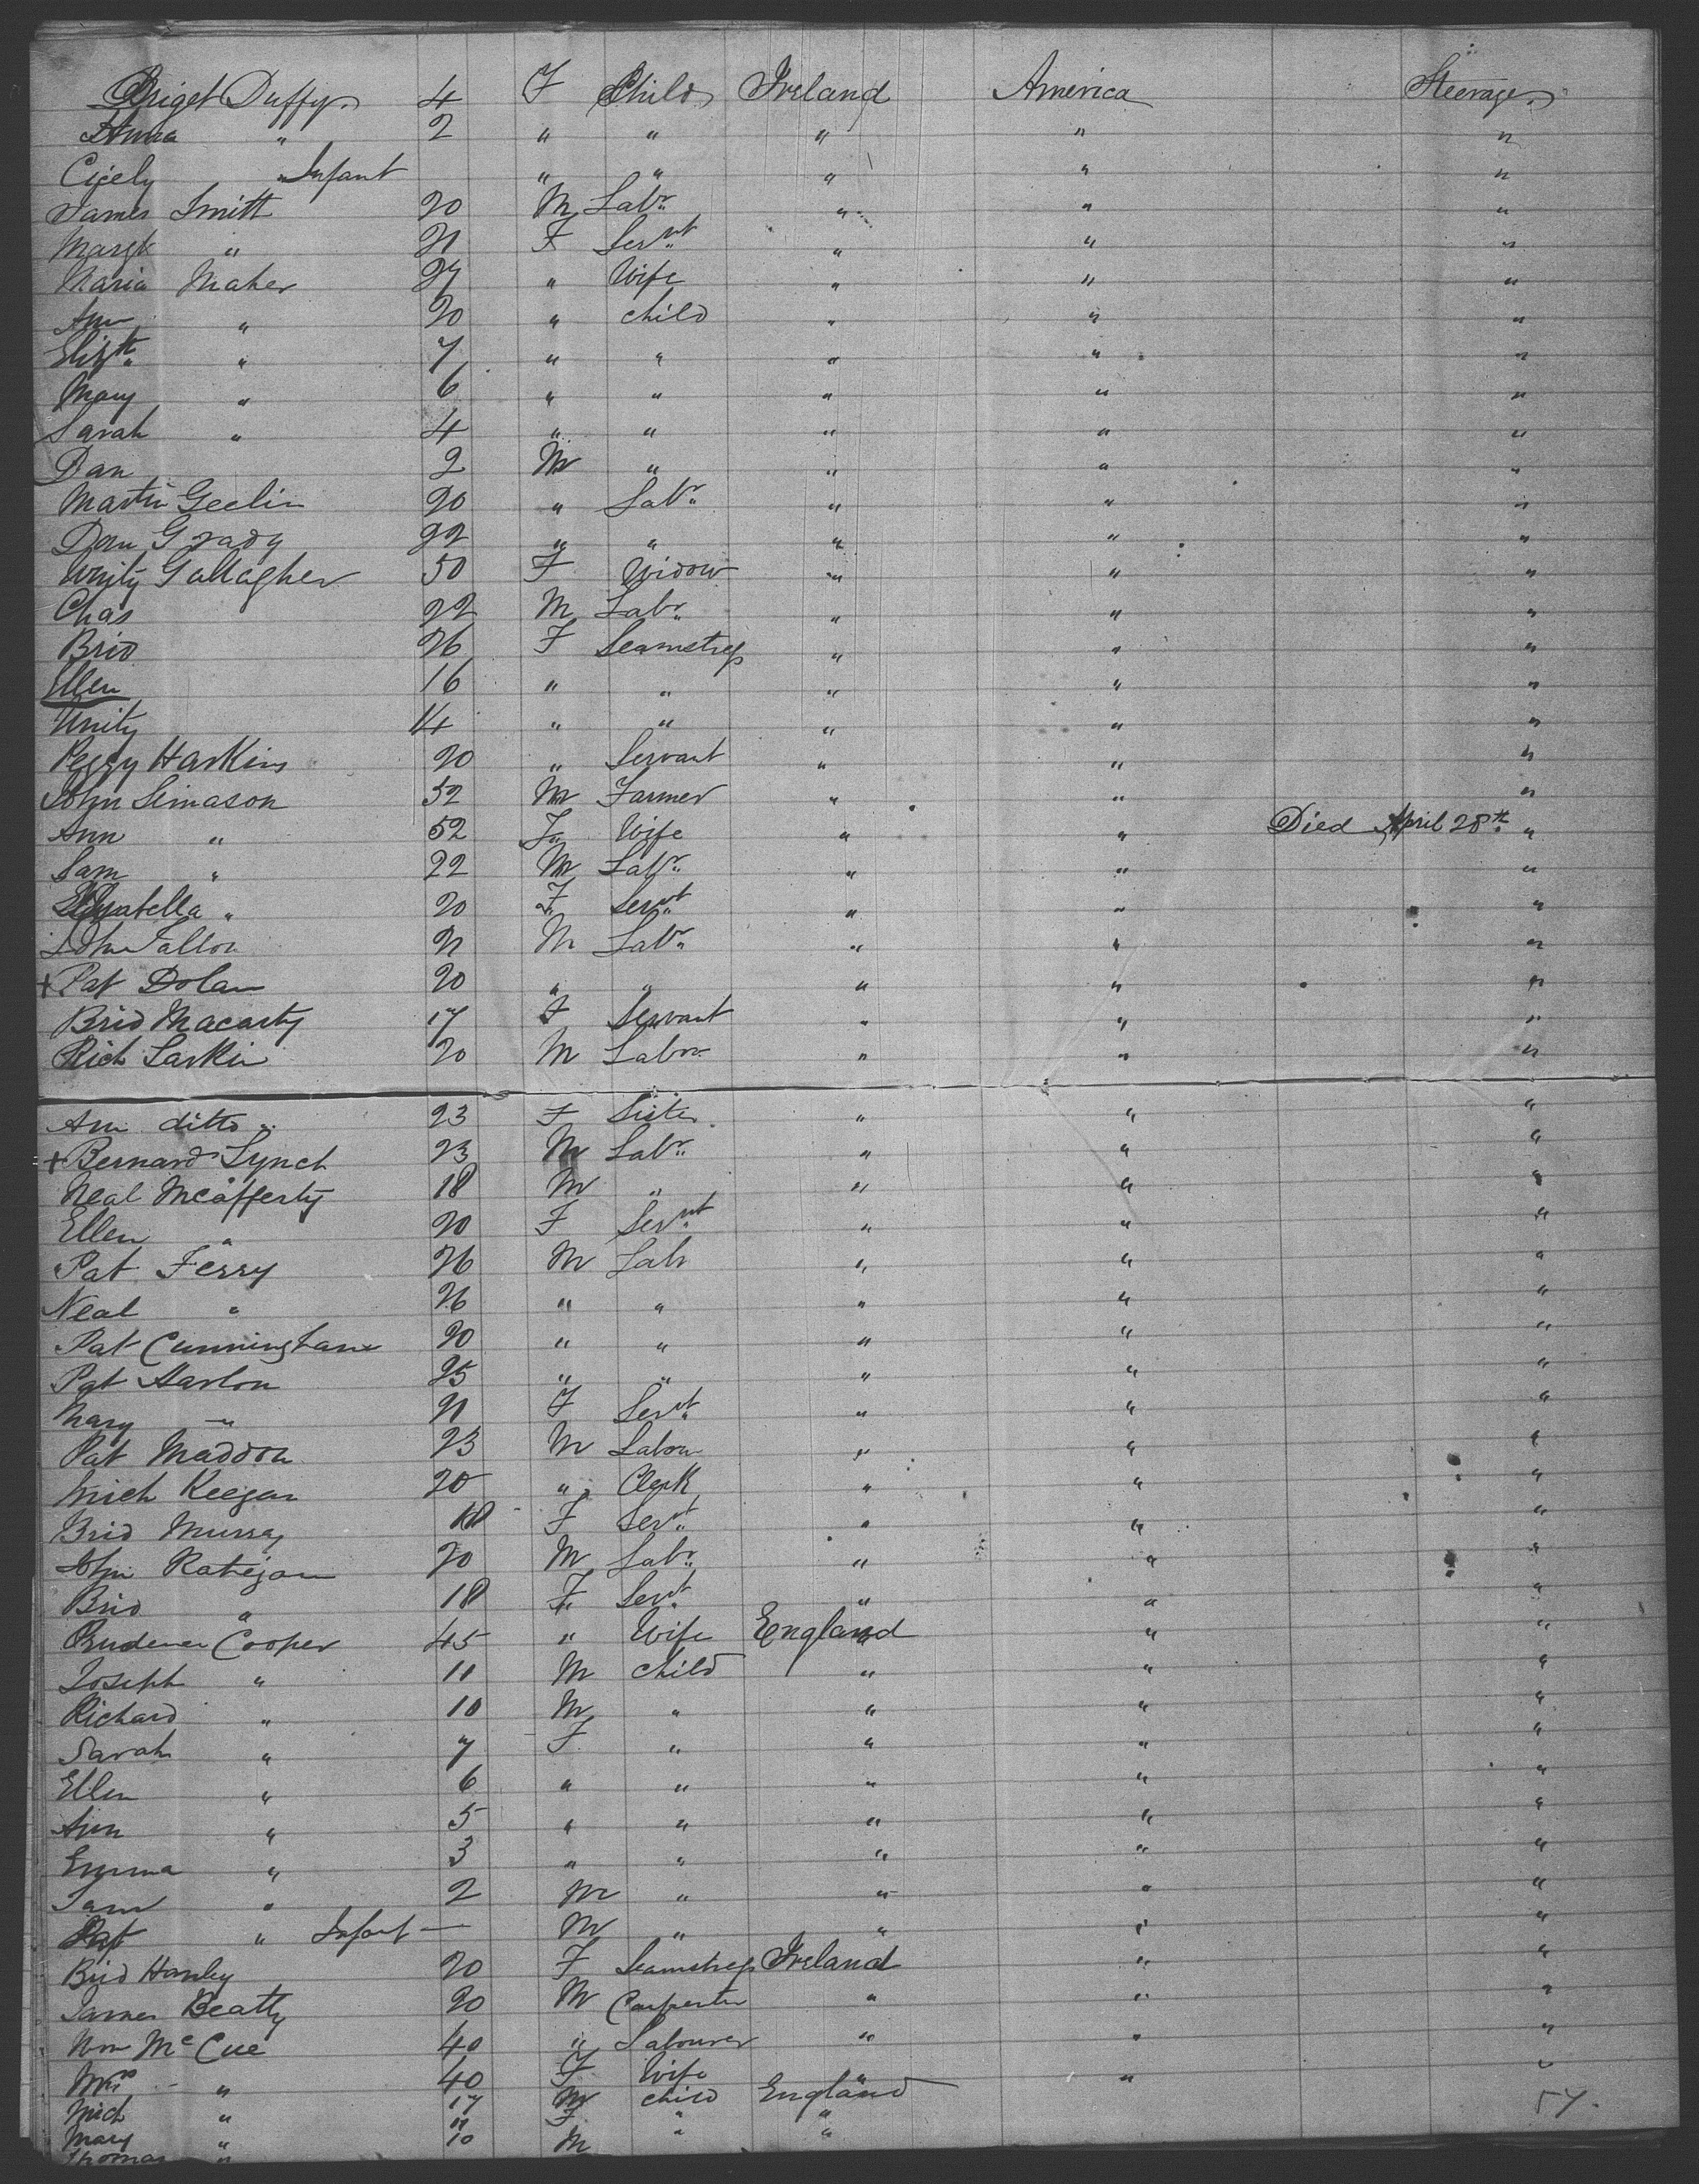 Briget Duffy 4 F Child Ireland America Steerage
Anna " 2 " " " " "
Cicely " Infant " " " " "
James Smitt 20 M Labr " " "
Margt " 21 F Servt " " "
Maria Maher 27 " Wife " " "
Ann " 20 " child " " "
Elizth " 7 " " " " "
Mary " 6 " " " " "
Sarah " 4 " " " " "
Dan 2 M " " " "
Martin Geelin 20 " Labr " " "
Dan Grady 22 " " " " "
Unity Gallagher 50 F Widow " " "
Chas 22 M Labr " " "
Brid 26 F Seamstress " " "
Ellen 16 " " " " "
Unity 14 " " " " "
Peggy Harkins 20 " Servant " " "
John Simason 52 M Farmer " " "
Ann " 52 F Wife " " Died April 28th "
Sam " 22 M Labr " " "
" 20 F Servt " " "
John Fallon 21 M Labr " " "
+ Pat Dolan 20 " " " " "
Brid Macarty 17 F Servant " " "
Rich Larkin 20 M Labor " " "
Ann ditto 23 F Sister " " "
+ Bernard Lynch 23 M Labr " " "
Neal Mcafferty 18 M " " " "
Ellen " 20 F Servt " " "
Pat Ferry 26 M Labr " " "
Neal " 26 " " " " "
Pat Cunningham 20 " " " " "
Pat Harlon 25 " " " " "
Mary " 21 F Servt " " "
Pat Maddon 23 M Labour " " "
Mich Keegan 20 " Clerk " " "
Brid Murray 18 F Servt " " "
John Ratigan 20 M Labr " " "
Brid " 18 F Servt " " "
Prudence Cooper 45 " Wife England " "
Joseph " 11 M child " " "
Richard " 10 M " " " "
Sarah " 7 F " " " "
Ellen " 6 " " " " "
Ann " 5 " " " " "
Emma " 3 " " " " "
Sam " 2 M " " " "
Pat " Infant — M " " " "
Brid Hanley 20 F Seamstress Ireland " "
James Beatty 20 M Carpenter " " "
Wm McCue 40 " Labourer " " "
Mrs " 40 F Wife " " "
Mich " 17 M child England
Mary " 11 F " "
Thomas " 10 M " "
57.